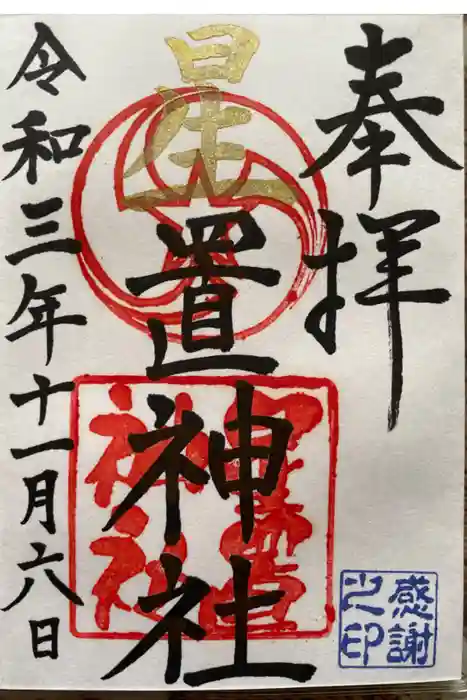 奉拝
星置神社
令和三年十一月六日
星置神社
感謝之印